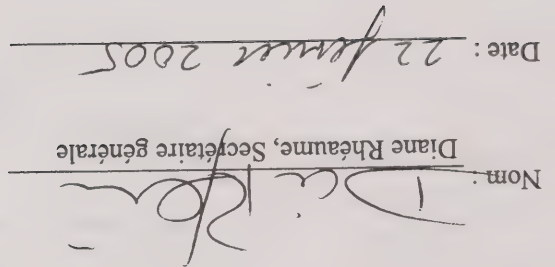 Nom :
Diane Rhéaume, Secrétaire générale
Date : 22 février 2005